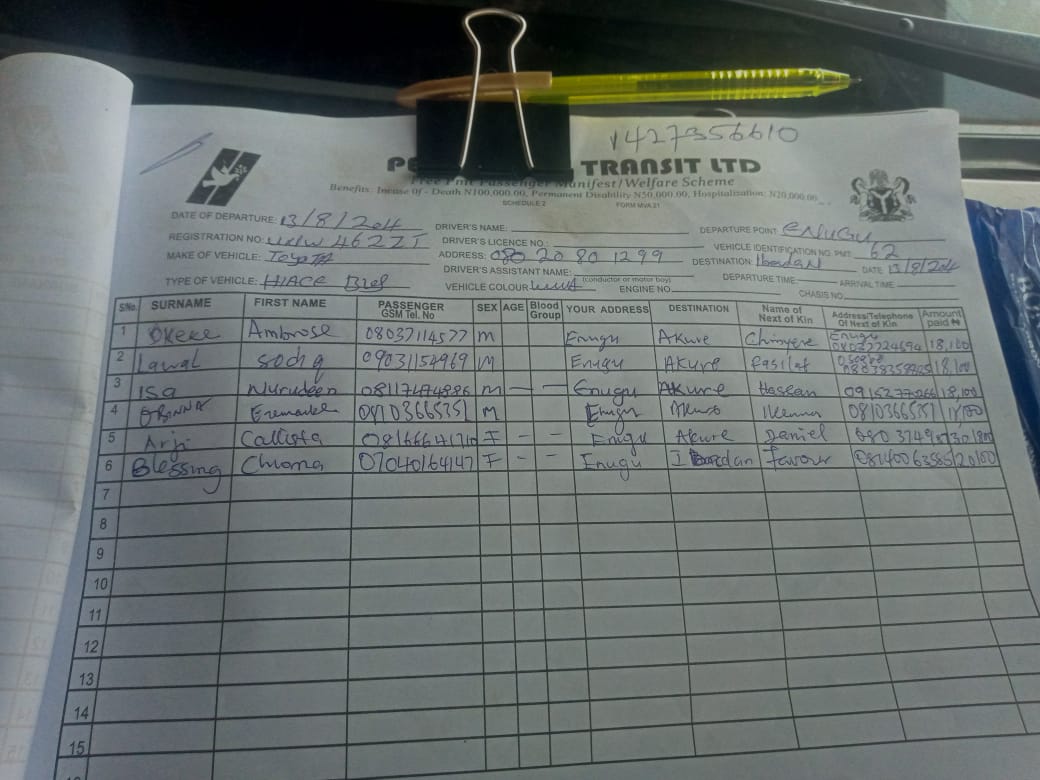 1427356610
PE TRANSIT LTD
Free Pmt Passenger Manifest/Welfare Scheme
Benefits: Incase Of - Death N100,000.00, Permanent Disability N50,000.00, Hospitalization: N20,000.00
SCHEDULE 2 FORM MVA 21
DATE OF DEPARTURE: 13/8/2024 DRIVER'S NAME: DEPARTURE POINT ENUGU
REGISTRATION NO: DRIVER'S LICENCE NO.: VEHICLE IDENTIFICATION NO. PMT: 62
MAKE OF VEHICLE: Toyota ADDRESS: 080 20 80 1299 DESTINATION: Ibadan DATE 13/8/204
TYPE OF VEHICLE: HIACE DRIVER'S ASSISTANT NAME: (conductor or motor boy) DEPARTURE TIME: ARRIVAL TIME
VEHICLE COLOUR ENGINE NO. CHASIS NO.
S/No. SURNAME FIRST NAME PASSENGER GSM Tel. No SEX AGE Blood Group YOUR ADDRESS DESTINATION Name of Next of Kin Address/Telephone Of Next of Kin Amount paid ₦
1 Okeke Ambrose 08037114577 M Enugu Akure Chinyere Enugu 18,100
2 Lawal 09031154969 M Enugu Akure Rasilat 18,100
3 Isa Nurudeen M — — Enugu Akure Hassan 18,100
4 Obinna 08103665351 M Enugu Akure Ikenna 0810366535
5 Callista F - - Enugu Akure Daniel
6 Blessing Chioma 07040164147 F - - Enugu Ibadan Favour 20100
7
8
9
10
11
12
13
14
15